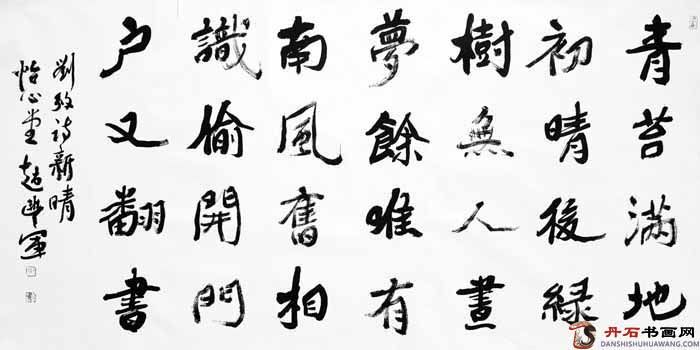 青苔滿地
初晴後綠
樹無人晝
夢餘唯有
南風舊相
識偷開門
户又翻書
劉攽詩新晴
怡心堂趙軍
丹石书画网
DANSHISHUHUAWANG.COM